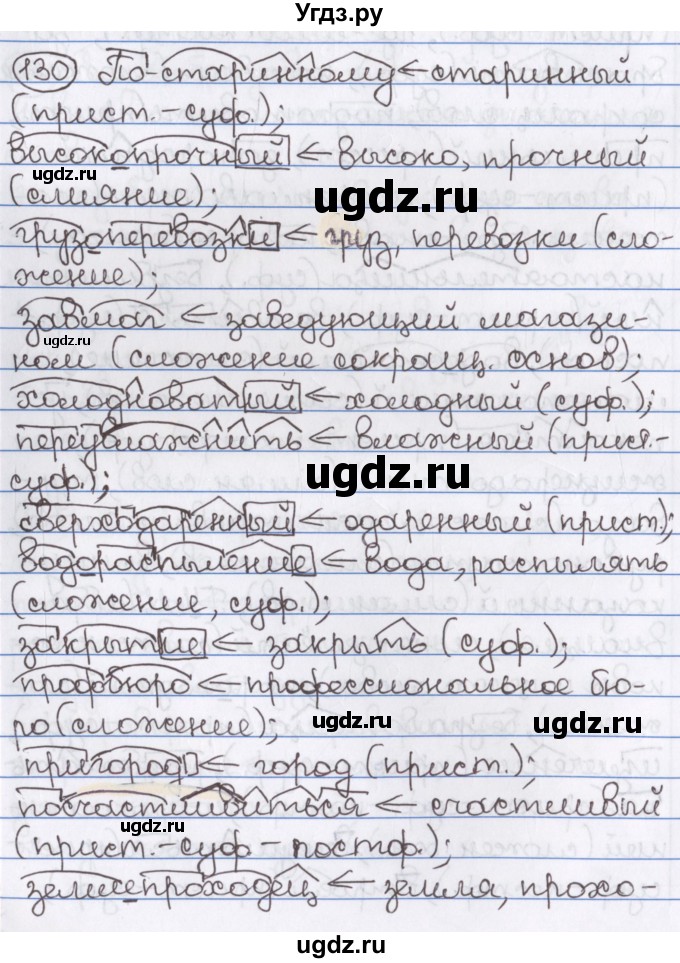 Угдз.ру
130 По-старинному ← старинный
(прист.-суф.);
высокопрочный ← высоко, прочный
(слияние);
ugdz.ru
грузоперевозки ← груз, перевозки (сло-
жение);
ugdz.ru
завмаг ← заведующий магази-
ном (сложение сокращ. основ);
холодноватый ← холодный (суф.);
переувлажнить ← влажный (прист.-
суф.);
ugdz.ru
сверходаренный ← одаренный (прист.);
водораспыление ← вода, распылять
(сложение, суф.);
закрытие ← закрыть (суф.);
профбюро ← профессиональное бю-
ро (сложение);
ugdz.ru
ugdz.ru
пригород ← город (прист.);
посчастливиться ← счастливый
ugdz.ru
(прист.-суф.-постф.);
землепроходец ← земля, прохо-
ugdz.ru